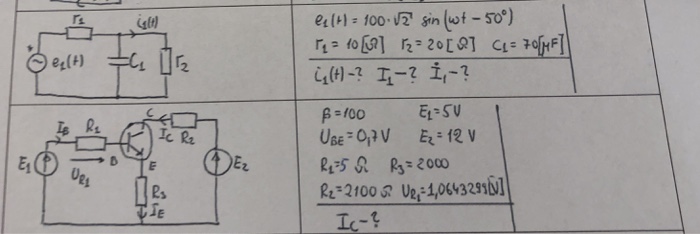 r₁ i₁(t)
e₁(t) C₁ r₂
e₁(t) = 100·√2 sin(ωt - 50°)
r₁ = 10[Ω] r₂ = 20[Ω] C₁ = 70[μF]
i₁(t) - ? I₁ - ? İ₁ - ?
C
I_B R₁ I_C R₂
E₁ B E E₂
U_R1
R₃
I_E
β = 100 E₁ = 5V
U_BE = 0,7V E₂ = 12 V
R₁ = 5 Ω R₃ = 2000
R₂ = 2100 Ω U_R1 = 1,0643299[V]
I_C - ?